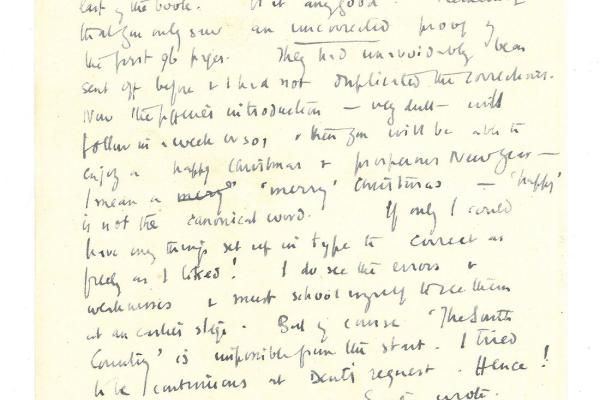 last of the book. Is it any good?
that you only saw an uncorrected proof of
the first 96 pages. They had unavoidably been
sent off before & I had not duplicated the corrections.
Now the introduction — very dull — will
follow in a week or so, & then you will be able to
enjoy a happy Christmas & prosperous New Year —
I mean a merry 'merry' Christmas — 'happy'
is not the canonical word. If only I could
have my things set up in type to correct as
freely as I liked! I do see the errors &
weaknesses & must school myself to see them
at an earlier stage. But of course 'The South
Country' is impossible from the start. I tried
to be continuous at Dent's request. Hence!
wrote.